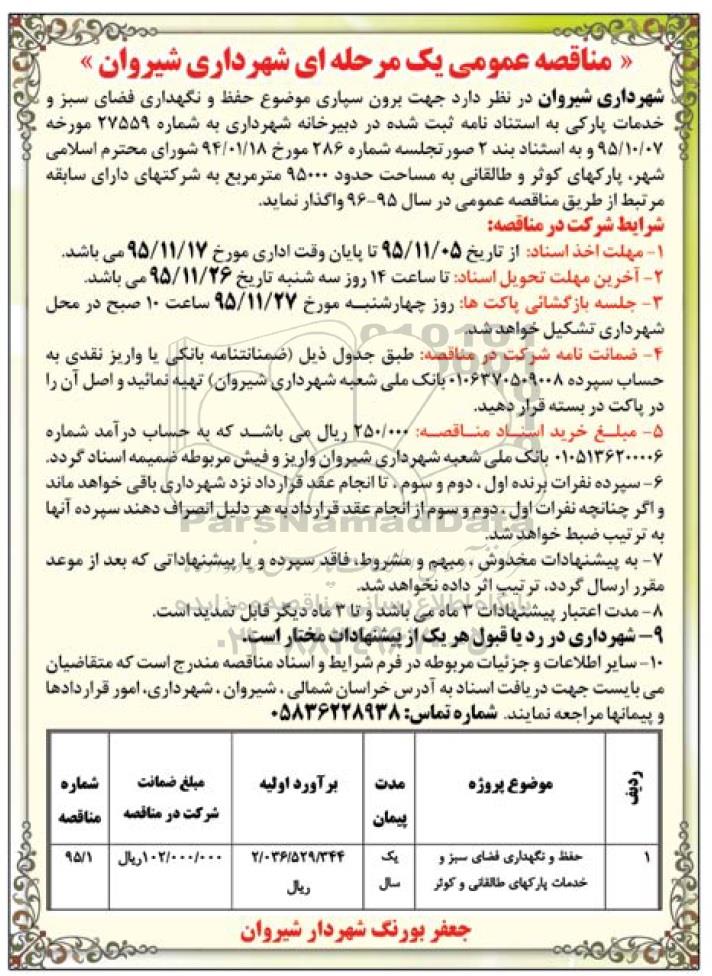 « مناقصه عمومی یک مرحله ای شهرداری شیروان »
شهرداری شیروان در نظر دارد جهت برون سپاری موضوع حفظ و نگهداری فضای سبز و
خدمات پارکی به استناد نامه ثبت شده در دبیرخانه شهرداری به شماره ۲۷۵۵۹ مورخه
۹۵/۱۰/۰۷ و به استناد بند ۲ صورتجلسه شماره ۲۸۶ مورخ ۹۴/۰۱/۱۸ شورای محترم اسلامی
شهر، پارکهای کوثر و طالقانی به مساحت حدود ۹۵۰۰۰ مترمربع به شرکتهای دارای سابقه
مرتبط از طریق مناقصه عمومی در سال ۹۵-۹۶ واگذار نماید.
شرایط شرکت در مناقصه:
۱- مهلت اخذ اسناد: از تاریخ ۹۵/۱۱/۰۵ تا پایان وقت اداری مورخ ۹۵/۱۱/۱۷ می باشد.
۲- آخرین مهلت تحویل اسناد: تا ساعت ۱۴ روز سه شنبه تاریخ ۹۵/۱۱/۲۶ می باشد.
۳- جلسه بازگشائی پاکت ها: روز چهارشنبه مورخ ۹۵/۱۱/۲۷ ساعت ۱۰ صبح در محل
شهرداری تشکیل خواهد شد.
۴- ضمانت نامه شرکت در مناقصه: طبق جدول ذیل (ضمنانتنامه بانکی یا واریز نقدی به
حساب سپرده ۰۱۰۶۳۷۰۵۰۹۰۰۸ بانک ملی شعبه شهرداری شیروان) تهیه نمائید و اصل آن را
در پاکت در بسته قرار دهید.
۵- مبلغ خرید اسناد مناقصه: ۲۵۰/۰۰۰ ریال می باشد که به حساب درآمد شماره
۰۱۰۵۱۳۶۲۰۰۰۰۶ بانک ملی شعبه شهرداری شیروان واریز و فیش مربوطه ضمیمه اسناد گردد.
۶- سپرده نفرات برنده اول ، دوم و سوم ، تا انجام عقد قرارداد نزد شهرداری باقی خواهد ماند
و اگر چنانچه نفرات اول ، دوم و سوم از انجام عقد قرارداد به هر دلیل انصراف دهند سپرده آنها
به ترتیب ضبط خواهد شد.
۷- به پیشنهادات مخدوش ، مبهم و مشروط، فاقد سپرده و یا پیشنهاداتی که بعد از موعد
مقرر ارسال گردد، ترتیب اثر داده نخواهد شد.
۸- مدت اعتبار پیشنهادات ۳ ماه می باشد و تا ۳ ماه دیگر قابل تمدید است.
۹- شهرداری در رد یا قبول هر یک از پیشنهادات مختار است.
۱۰- سایر اطلاعات و جزئیات مربوطه در فرم شرایط و اسناد مناقصه مندرج است که متقاضیان
می بایست جهت دریافت اسناد به آدرس خراسان شمالی ، شیروان ، شهرداری، امور قراردادها
و پیمانها مراجعه نمایند. شماره تماس: ۰۵۸۳۶۲۲۸۹۳۸
ردیف موضوع پروژه مدت پیمان برآورد اولیه مبلغ ضمانت شرکت در مناقصه شماره مناقصه
۱ حفظ و نگهداری فضای سبز و خدمات پارکهای طالقانی و کوثر یک سال ۲/۰۳۶/۵۲۹/۳۴۴ ریال ۱۰۲/۰۰۰/۰۰۰ریال ۹۵/۱
جعفر بورنگ شهردار شیروان
ParsNamadData
پایگاه اطلاع رسانی مناقصه و مزایده